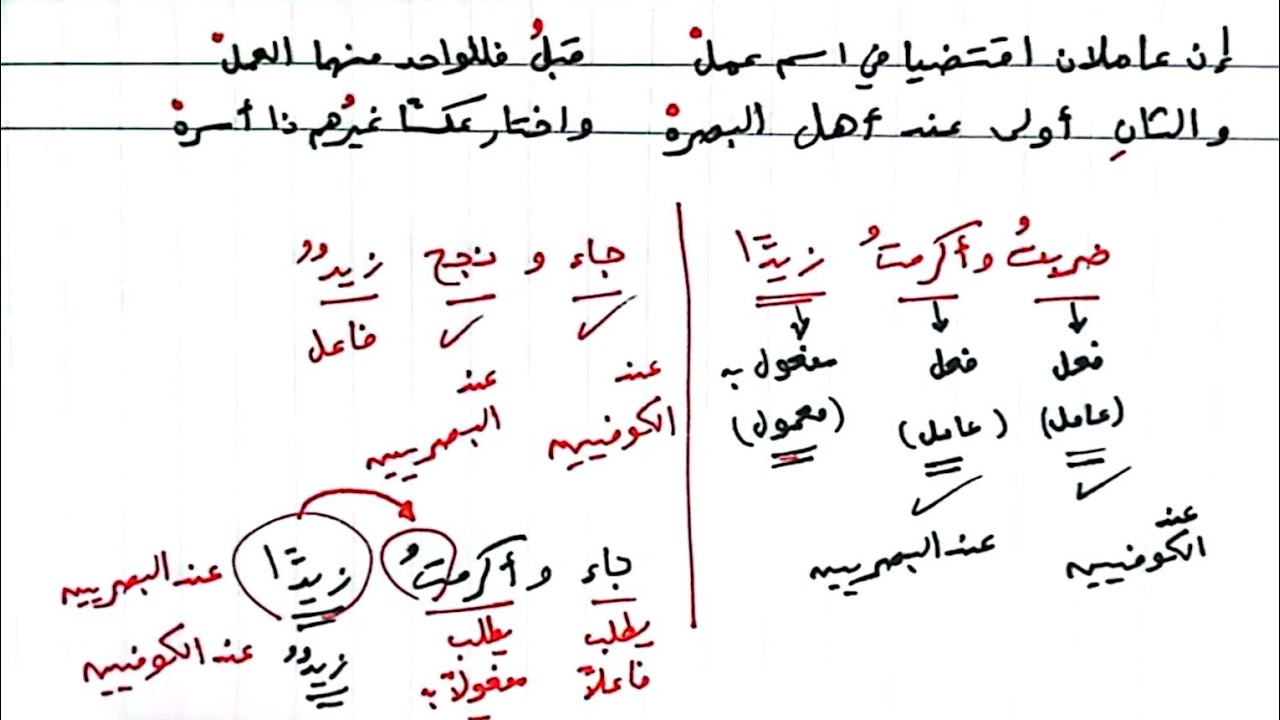 إن عاملان اقتضيا في اسم عملْ قبلُ فللواحد منهما العملْ
والثانِ أولى عند أهل البصرهْ واختار عكسًا غيرُهم ذا أسرهْ
ضربتُ وأكرمتُ زيدًا
فعل فعل مفعول به
(عامل) (عامل) (معمول)
عند الكوفيين
عند البصريين
جاء و نجح زيدٌ
فاعل
عند عند
الكوفيين البصريين
جاء و أكرمتُ زيدًا عند البصريين
يطلب يطلب زيدٌ عند الكوفيين
فاعلاً مفعولاً به